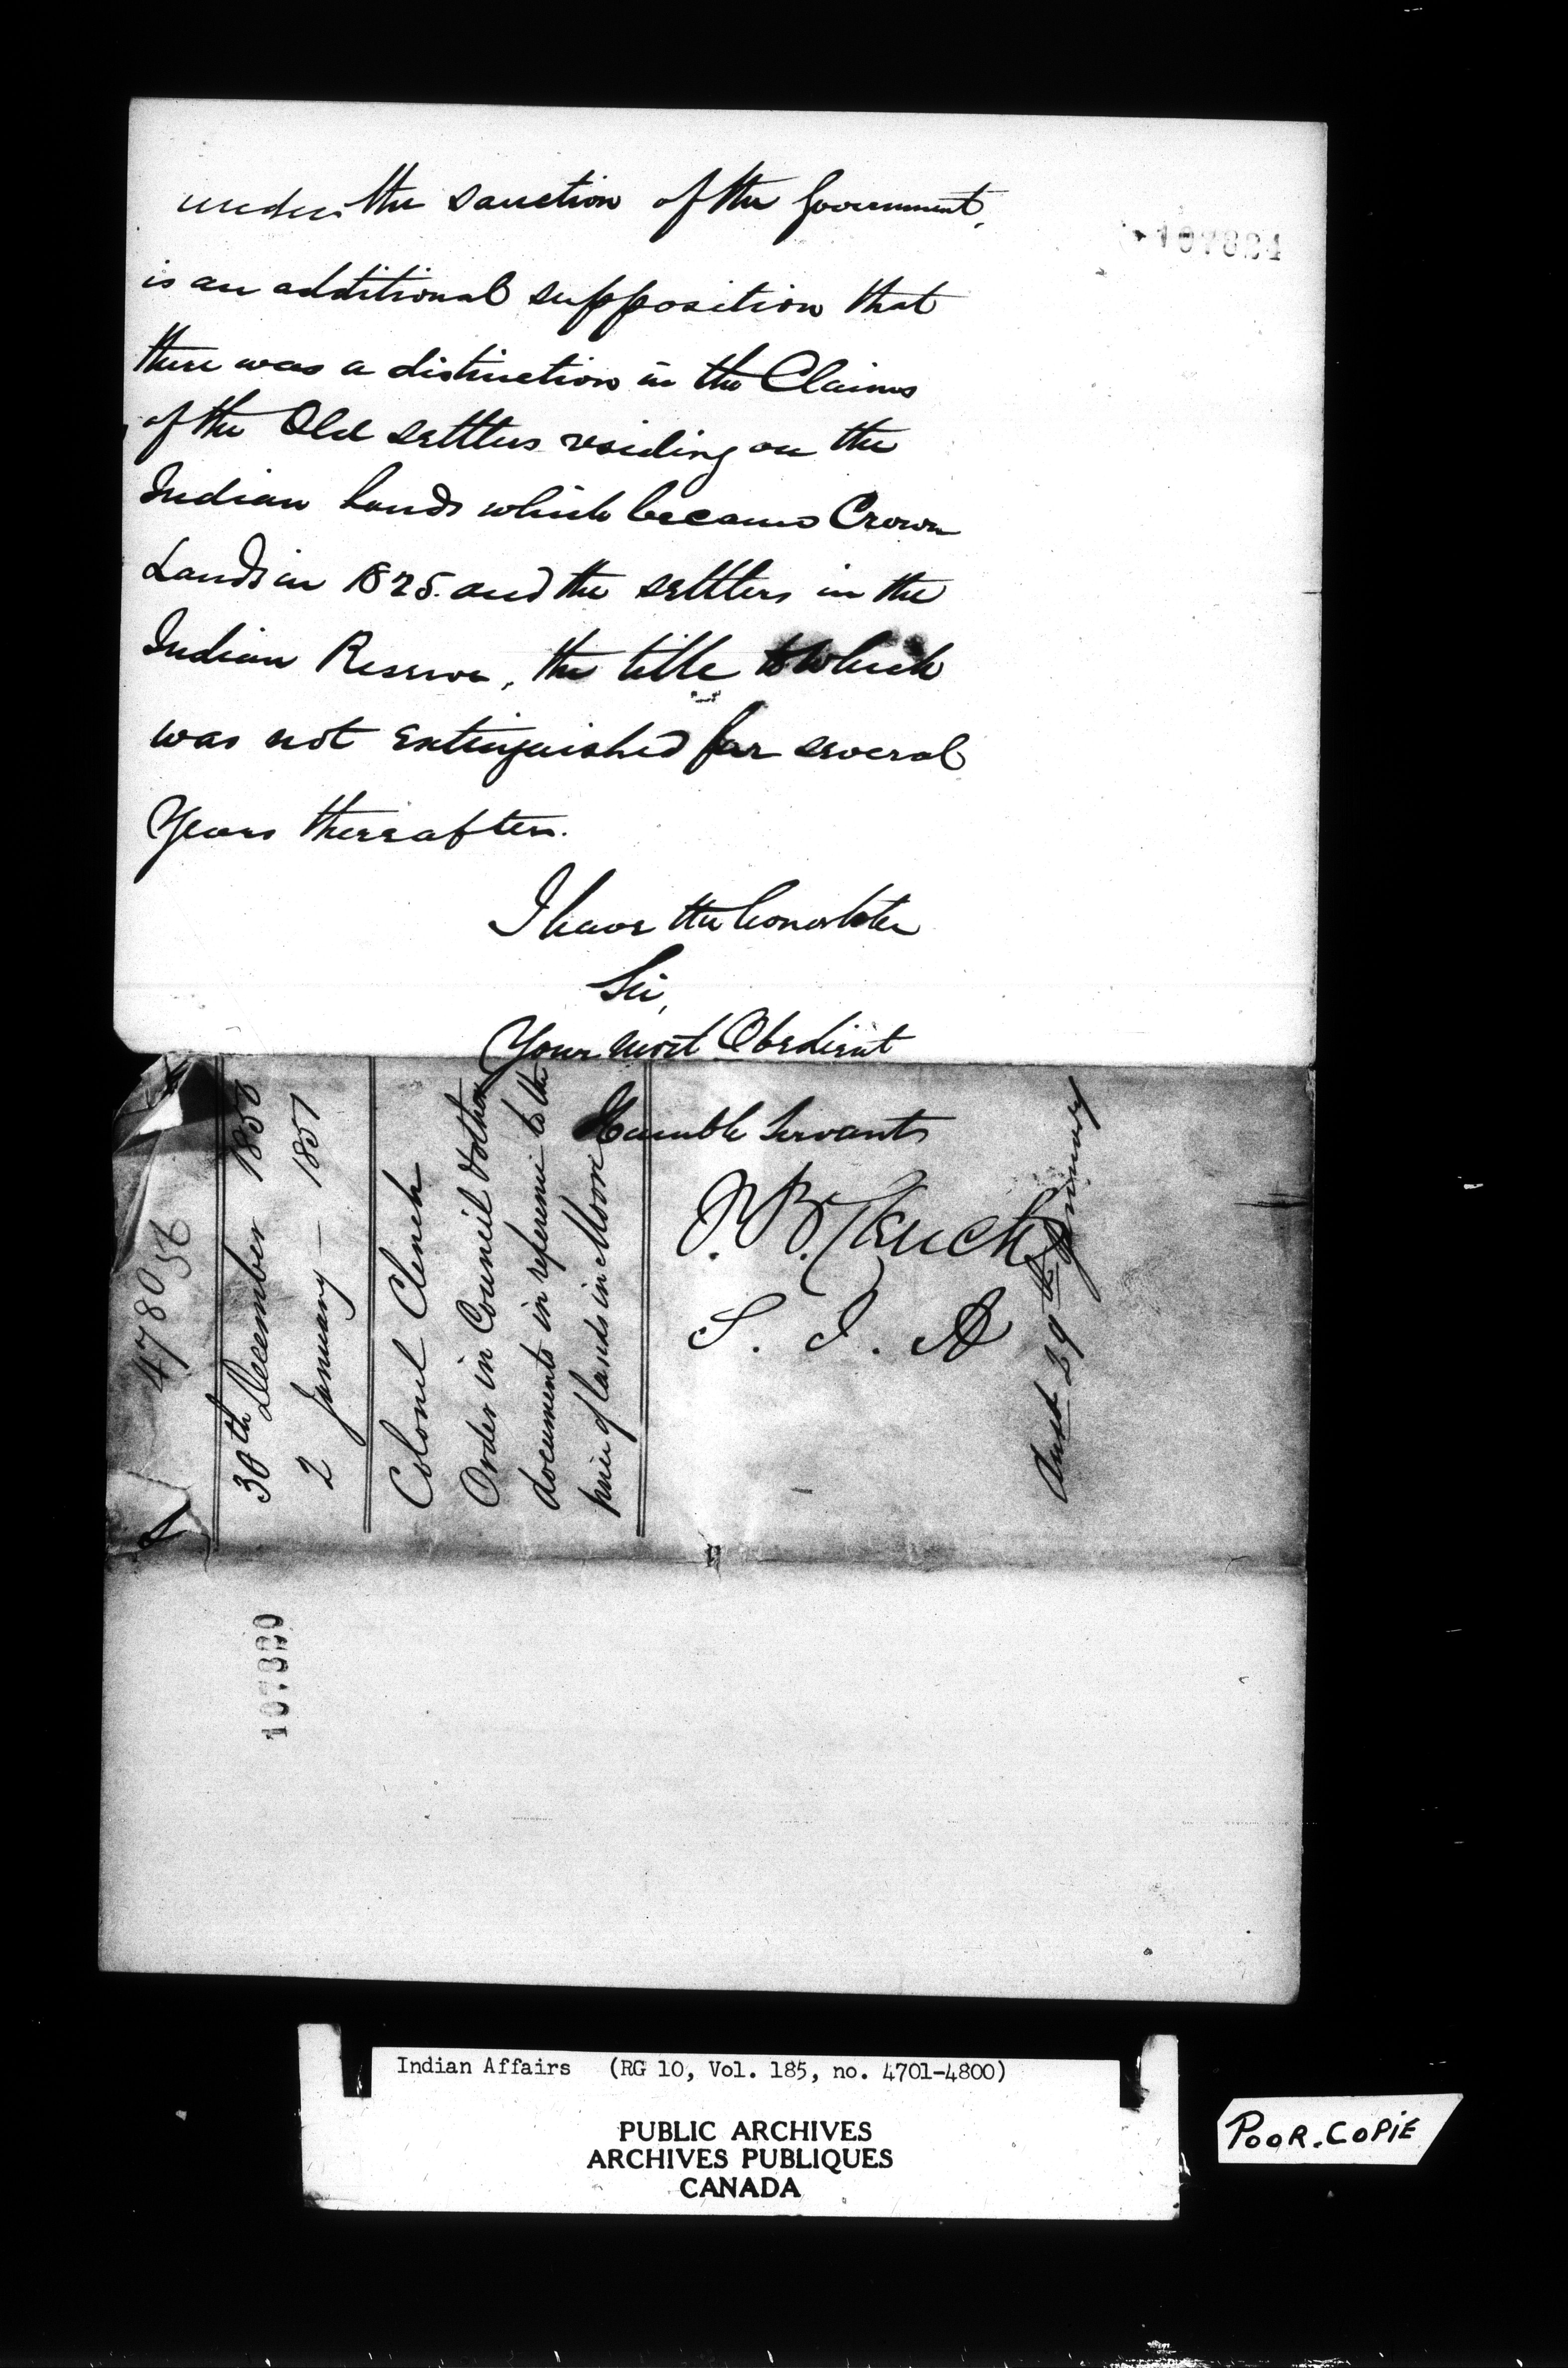 under the sanction of the Government,
is an additional supposition that
there was a distinction in the Claims
of the Old settlers residing on the
Indian Lands which became Crown
Lands in 1825. and the settlers in the
Indian Reserve, the title to which
was not extinguished for several
Years thereafter.
I have the honor to be
Sir,
Your most Obedient
Humble Servant
J. B. Clench
S. I. A
4780
30th December 1850
2 January — 1851
Colonel Clench
Order in Council & other
documents in reference to the
price of lands in Moore
Ansd 29th January
107880
Indian Affairs (RG 10, Vol. 185, no. 4701-4800)
PUBLIC ARCHIVES
ARCHIVES PUBLIQUES
CANADA
POOR.COPIE